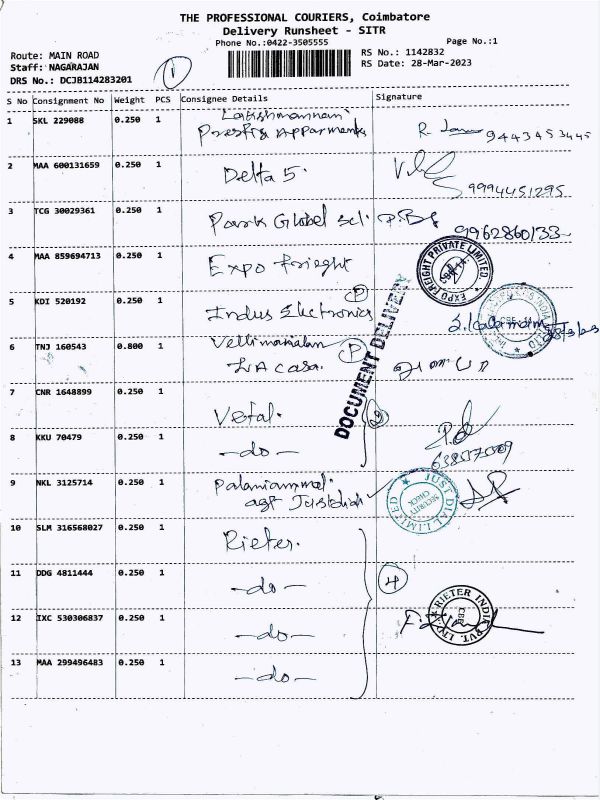 THE PROFESSIONAL COURIERS, Coimbatore
Delivery Runsheet - SITR
Phone No.:0422-3505555
Page No.:1
Route: MAIN ROAD
Staff: NAGARAJAN
DRS No.: DCJB114283201
1
RS No.: 1142832
RS Date: 28-Mar-2023
S No Consignment No Weight PCS Consignee Details Signature
1 SKL 229088 0.250 1 Lakshmannan
Apparments
9443453445
2 MAA 600131659 0.250 1 Delta 5.
9994451295
3 TCG 30029361 0.250 1 Park Global scl.
9962860133
4 MAA 859694713 0.250 1 Expo frieght
EXPO FREIGHT PRIVATE LIMITED
5 KDI 520192 0.250 1 Indus Electronics
P
DOCUMENT DELIVERY
6 TNJ 160543 0.800 1
P
casa.
7 CNR 1648899 0.250 1
8 KKU 70479 0.250 1 -do-
9 NKL 3125714 0.250 1 Palaniammal.
Justdial
JUST DIAL LIMITED
SECURITY CHECK
10 SLM 316568027 0.250 1 Rieter.
11 DDG 4811444 0.250 1 -do-
4
12 IXC 530306837 0.250 1 -do-
RIETER INDIA PVT. LTD.
CBE
13 MAA 299496483 0.250 1 -do-